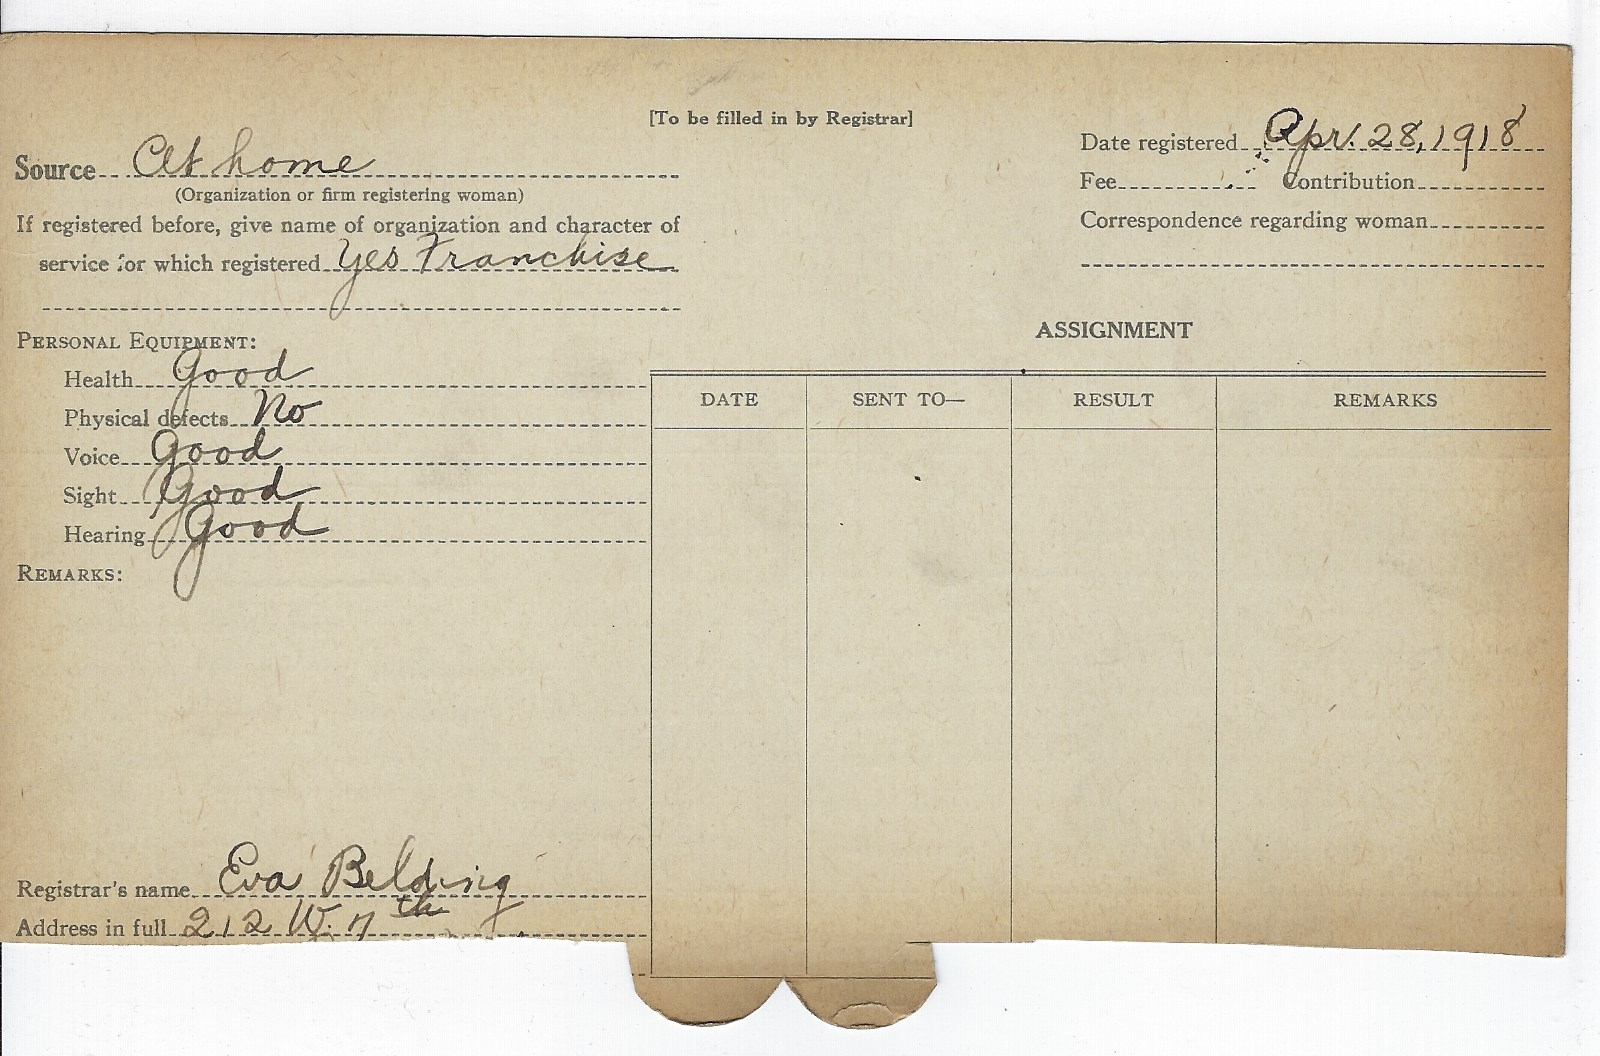 [To be filled in by Registrar]
Source At home
(Organization or firm registering woman)
If registered before, give name of organization and character of
service for which registered Yes Franchise
Date registered Apr. 28, 1918
Fee Contribution
Correspondence regarding woman
PERSONAL EQUIPMENT:
Health Good
Physical defects No
Voice Good
Sight Good
Hearing Good
REMARKS:
ASSIGNMENT
DATE SENT TO— RESULT REMARKS
Registrar's name Eva Belding
Address in full 212 W. 7th